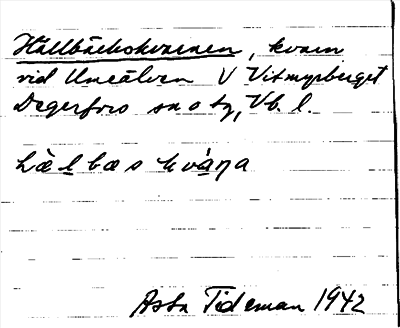 Hällbäckskvarnen, kvarn
vid Umeälven V Vitmyrberget
Degerfors sn o tg, Vb. l.
hælbæskváṇa
Asta Tideman 1942